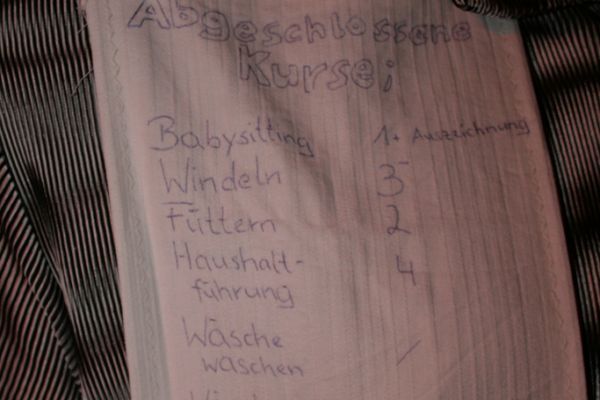 Abgeschlossene
Kurse;
Babysitting 1+ Auszeichnung
Windeln 3-
Füttern 2
Haushalt- 4
führung
Wäsche
waschen /